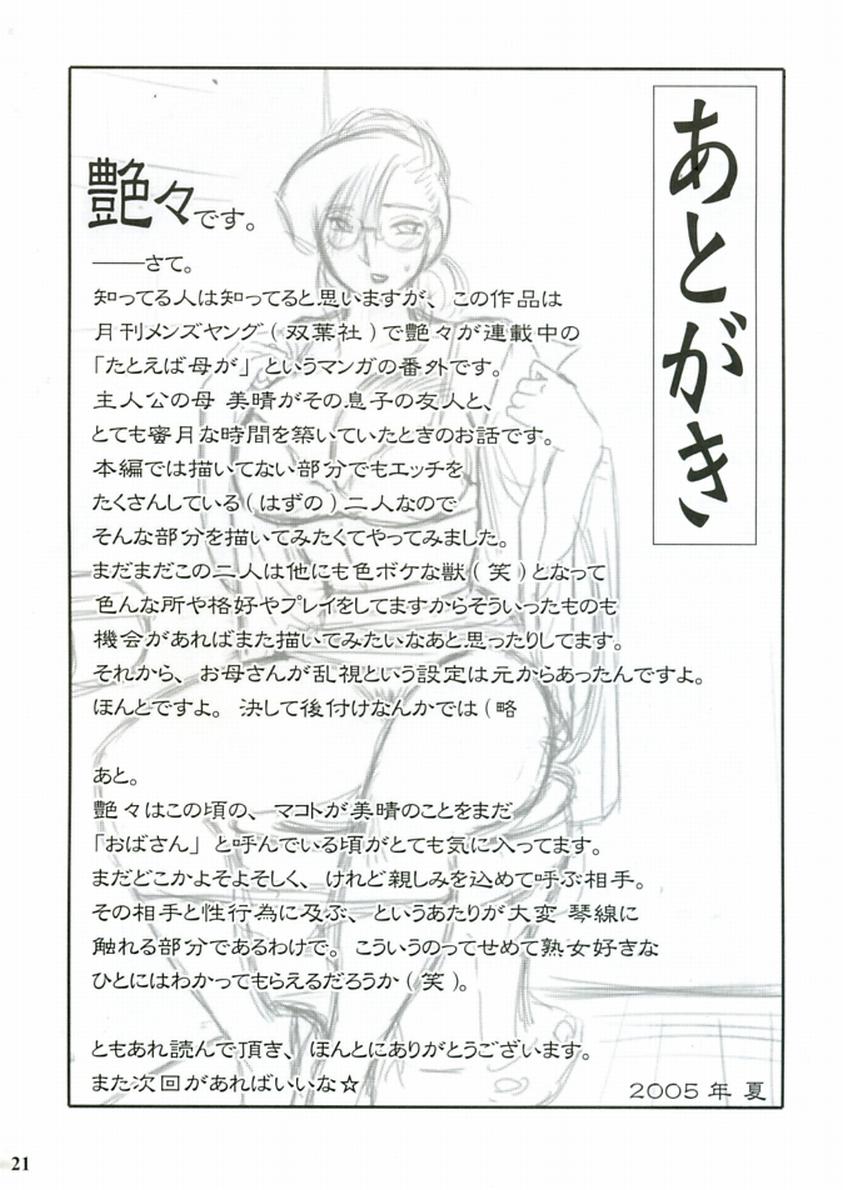 あとがき
艶々です。
――さて。
知ってる人は知ってると思いますが、この作品は
月刊メンズヤング(双葉社)で艶々が連載中の
「たとえば母が」というマンガの番外です。
主人公の母 美晴がその息子の友人と、
とても蜜月な時間を築いていたときのお話です。
本編では描いてない部分でもエッチを
たくさんしている(はずの)二人なので
そんな部分を描いてみたくてやってみました。
まだまだこの二人は他にも色ボケな獣(笑)となって
色んな所や格好やプレイをしてますからそういったものも
機会があればまた描いてみたいなあと思ったりしてます。
それから、お母さんが乱視という設定は元からあったんですよ。
ほんとですよ。決して後付けなんかでは(略
あと。
艶々はこの頃の、マコトが美晴のことをまだ
「おばさん」と呼んでいる頃がとても気に入ってます。
まだどこかよそよそしく、けれど親しみを込めて呼ぶ相手。
その相手と性行為に及ぶ、というあたりが大変 琴線に
触れる部分であるわけで。こういうのってせめて熟女好きな
ひとにはわかってもらえるだろうか(笑)。
ともあれ読んで頂き、ほんとにありがとうございます。
また次回があればいいな☆
2005年 夏
21